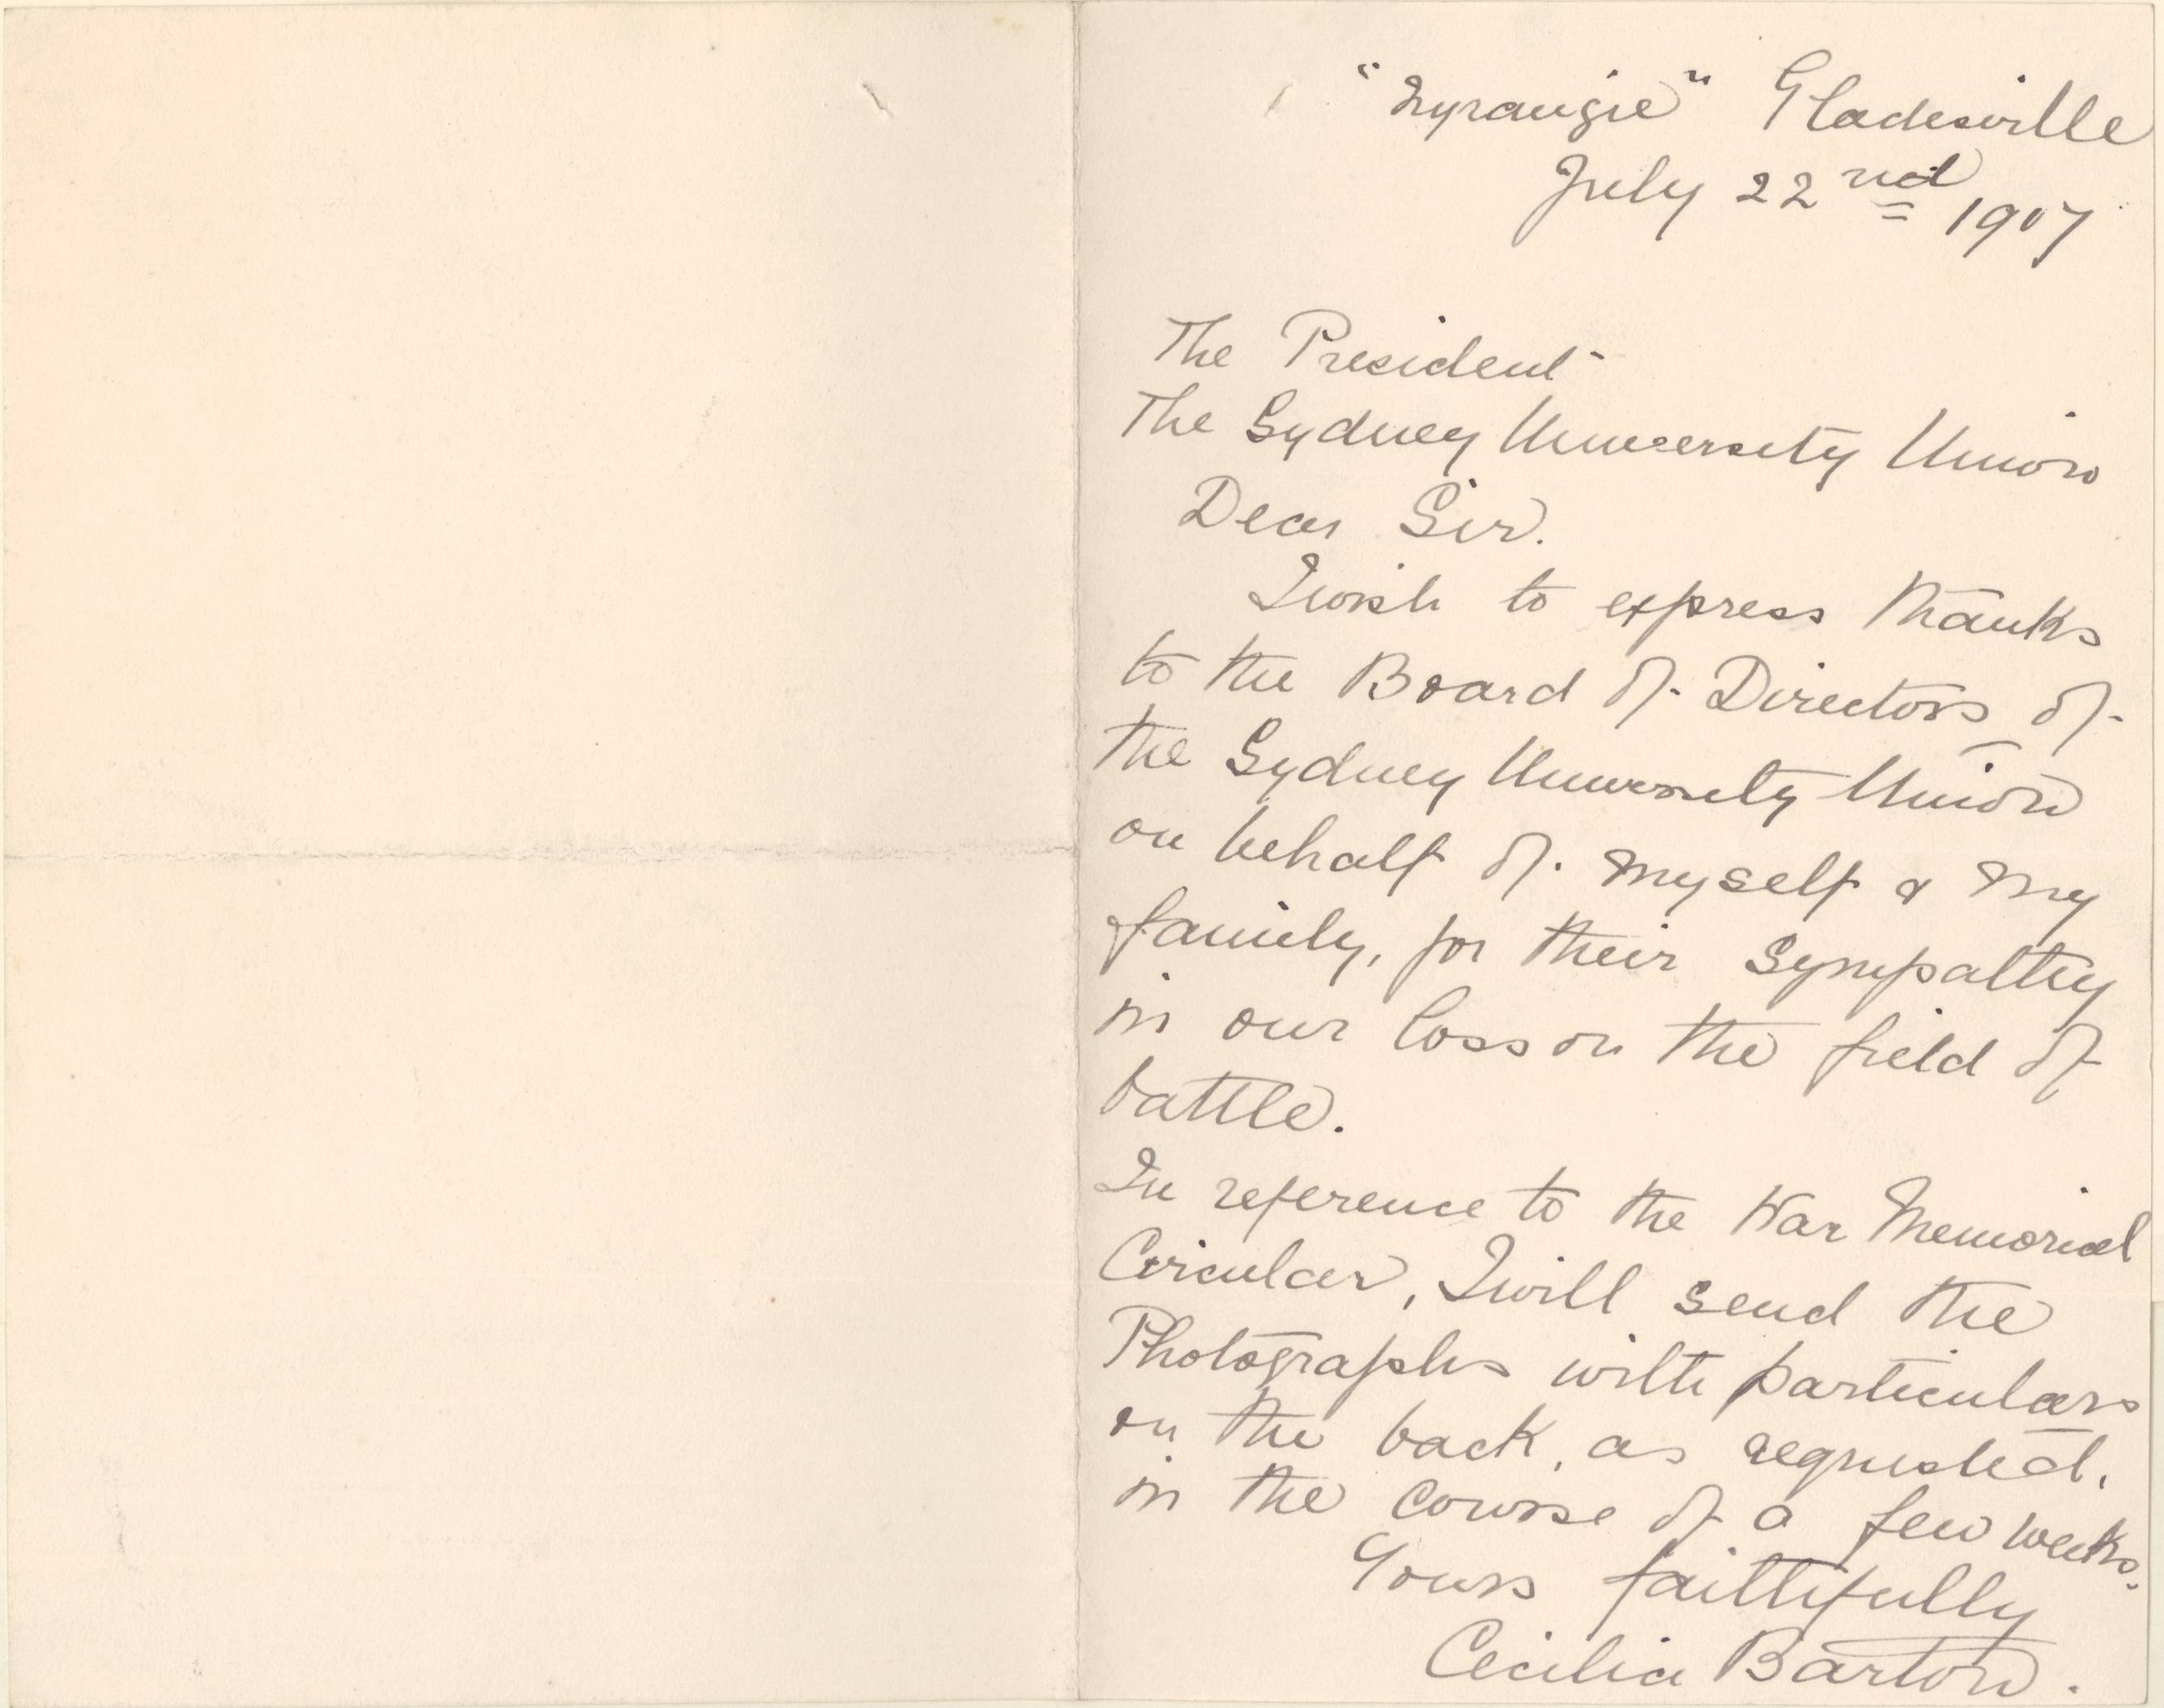 "Nyrangie" Gladesville
July 22nd 1917
The President
The Sydney University Union
Dear Sir.
I wish to express thanks
to the Board of Directors of
the Sydney University Union
on behalf of myself & my
family, for their sympathy
in our loss on the field of
battle.
In reference to the War Memorial
Circular, I will send the
Photographs with particulars
on the back, as requested,
in the course of a few weeks.
Yours faithfully
Cecilia Barton.